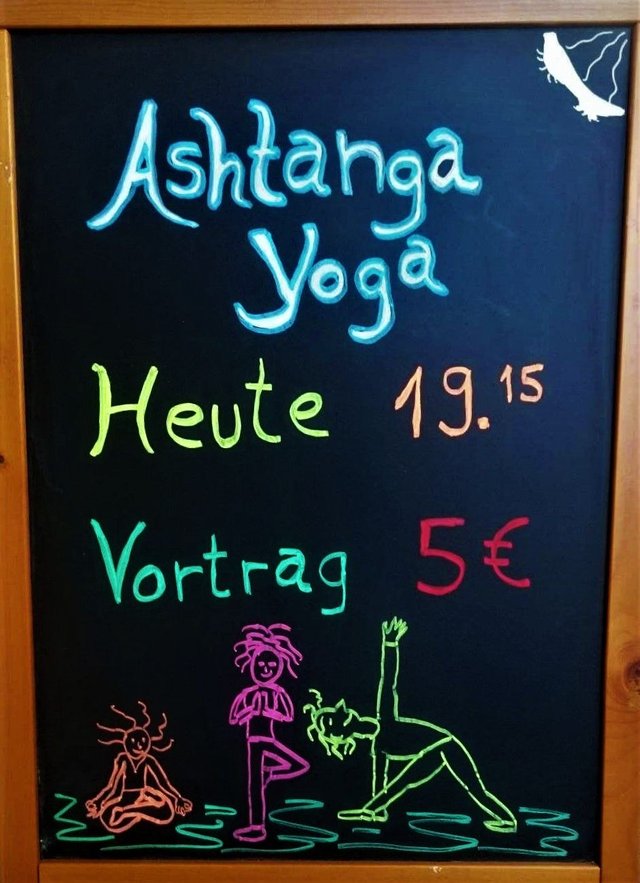 Ashtanga
Yoga
Heute 19.15
Vortrag 5€